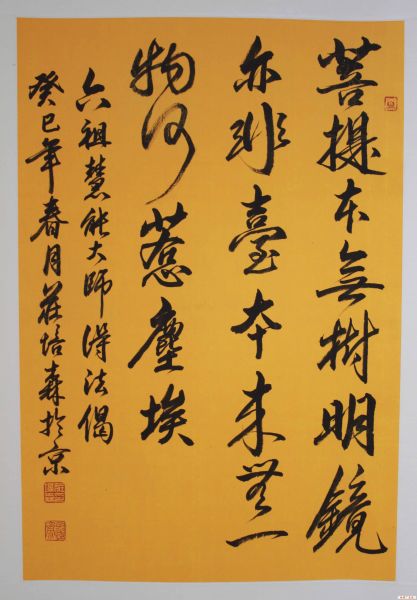 菩提本無樹明鏡
亦非臺本来無一
物何惹塵埃
六祖慧能大師得法偈
癸巳年春月培森於京